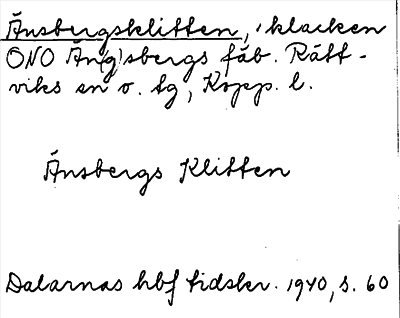 Änsbergsklitten, klacken
ONO Än(g)sbergs fäb. Rätt-
viks sn o. tg, Kopp. l.
Änsbergs Klitten
Dalarnas hbf tidskr. 1940, s. 60